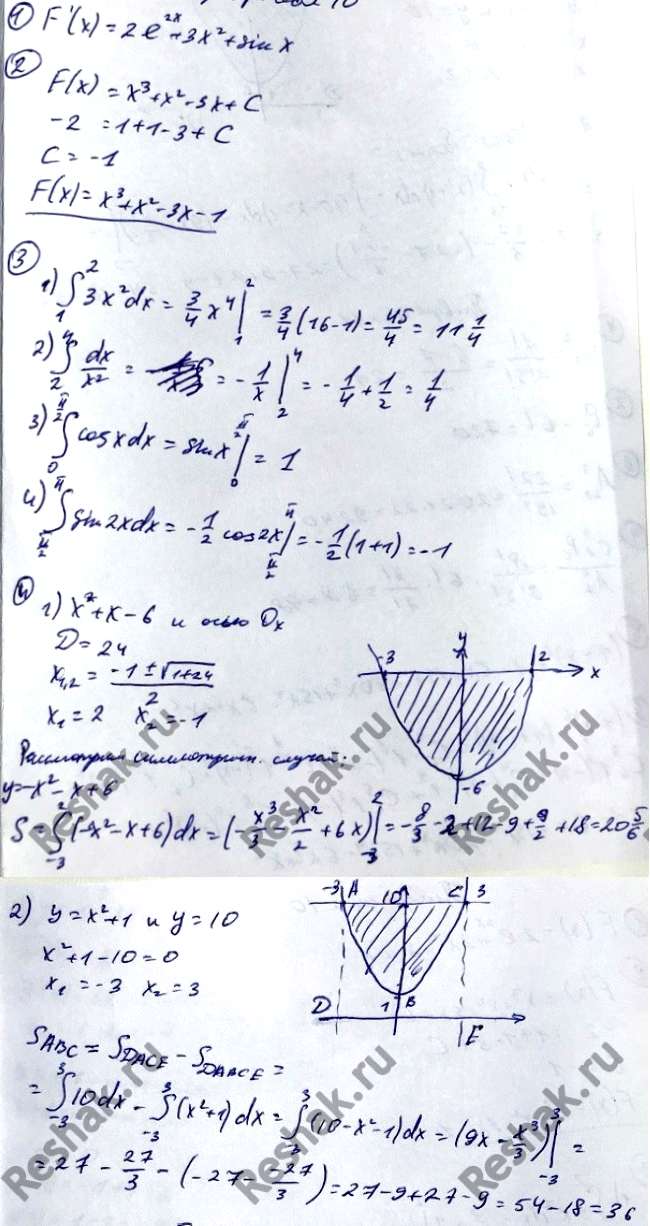 ① F'(x) = 2e^2x + 3x² + sin x
②
F(x) = x³ + x² - 3x + C
-2 = 1 + 1 - 3 + C
C = -1
F(x) = x³ + x² - 3x - 1
③
1) ∫₁² 3x² dx = 3/4 x⁴ |₁² = 3/4 (16 - 1) = 45/4 = 11 1/4
2) ∫₂⁴ dx/x² = = -1/x |₂⁴ = -1/4 + 1/2 = 1/4
3) ∫₀^(π/2) cos x dx = sin x |₀^(π/2) = 1
4) ∫_(π/2)^π sin 2x dx = -1/2 cos 2x |_(π/2)^π = -1/2 (1 + 1) = -1
④
1) x² + x - 6 и осью Ox
D = 24
x₁,₂ = (-1 ± √(1+24))/2
x₁ = 2 x₂ = -1
y
-3 2 x
-6
Рассмотрим симметричн. случай:
y = -x² - x + 6
S = ∫₋₃² (-x² - x + 6) dx = (-x³/3 - x²/2 + 6x) |₋₃² = -8/3 - 2 + 12 - 9 + 9/2 + 18 = 20 5/6
2) y = x² + 1 и y = 10
x² + 1 - 10 = 0
x₁ = -3 x₂ = 3
-3 A 10 C 3
1 B
D E
S_ABC = S_DACE - S_DABCE =
= ∫₋₃³ 10 dx - ∫₋₃³ (x² + 1) dx = ∫₋₃³ (10 - x² - 1) dx = (9x - x³/3) |₋₃³ =
= 27 - 27/3 - (-27 - -27/3) = 27 - 9 + 27 - 9 = 54 - 18 = 36
Reshak.ru
Reshak.ru
Reshak.ru
Reshak.ru
Reshak.ru
Reshak.ru